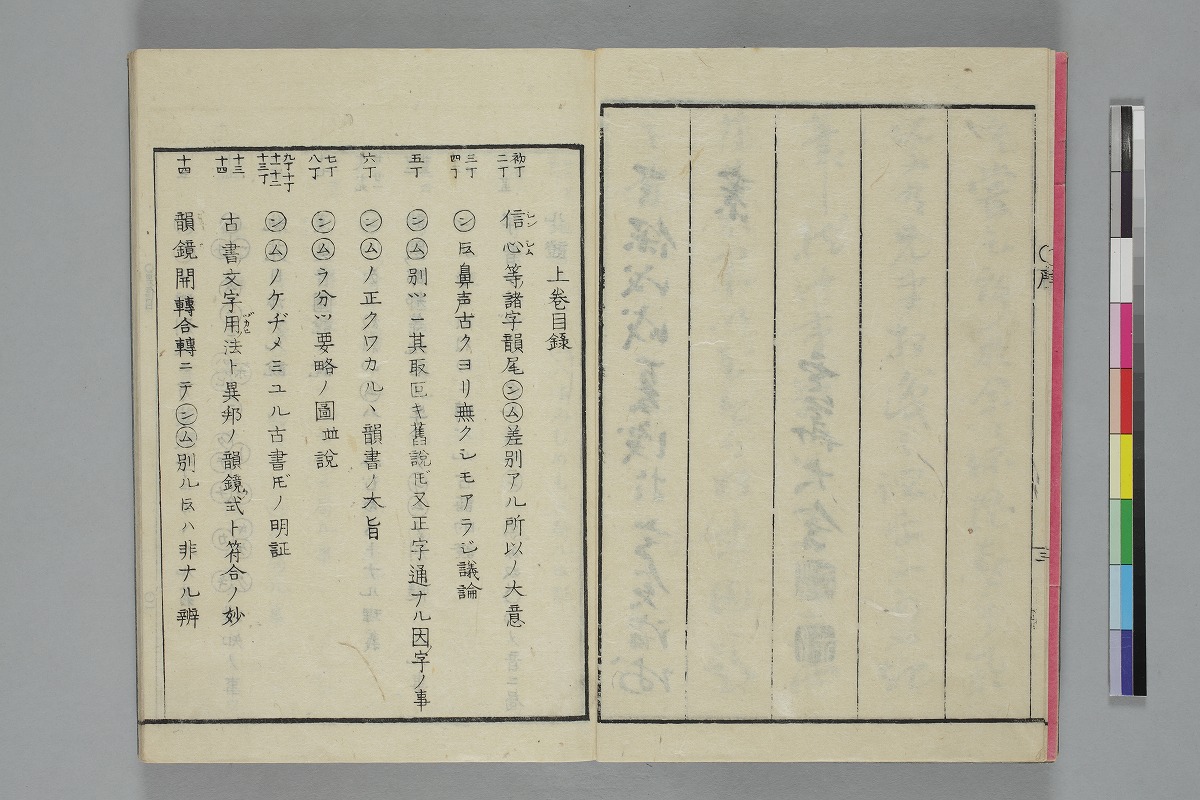 上巻目録
初丁 二丁 信心等諸字韻尾㋛㋰差別アル所以ノ大意
三丁 四丁 ㋛反鼻声古クヨリ無クシモアラジ議論
五丁 ㋛㋰別ツ一其取
六丁 ㋛㋰ノ正クワカルヽ韻書ノ大旨
七丁 八丁 ㋛㋰ヲ分ツ要略ノ圖並說
九丁十丁 十一十二 十三丁 ㋛㋰ノケヂメミユル古書𪜈ノ明証
十三 十四 古書文字用法ト異邦ノ韻鏡式ト符合ノ妙
十四 韻鏡開轉合轉ニテ㋛㋰別ル反ハ非ナル辨
三